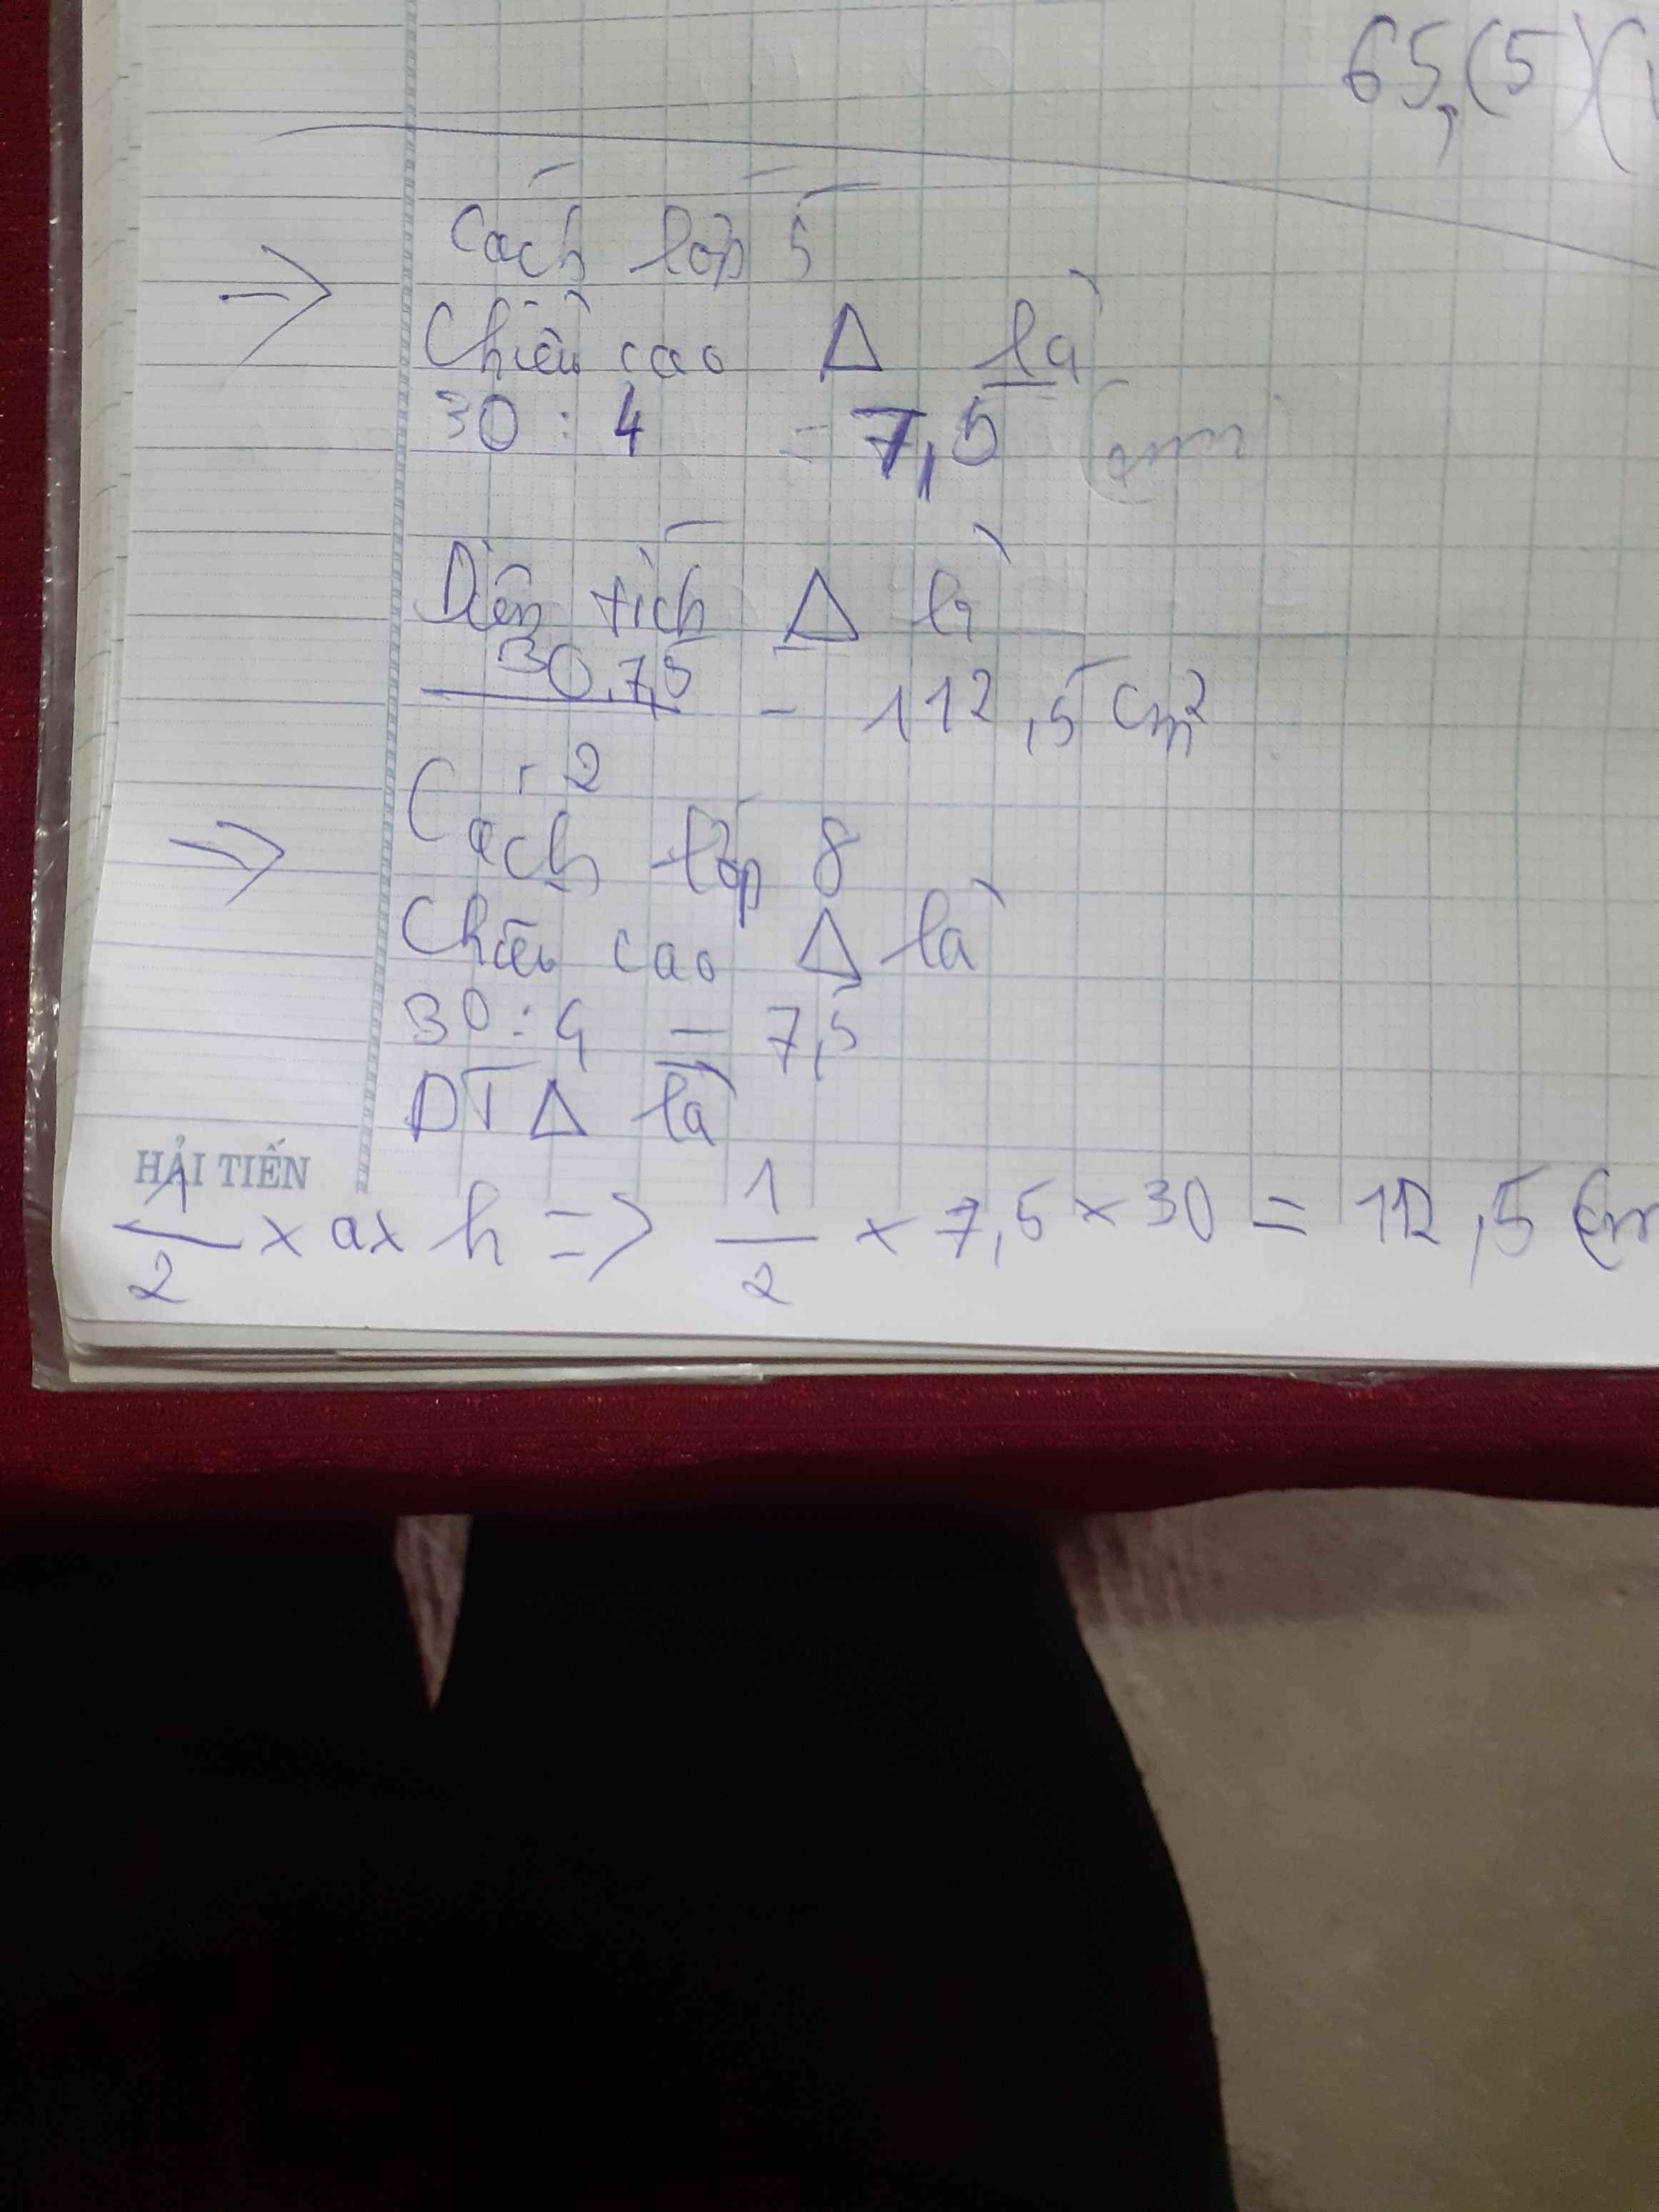 65,(5)(
Cách lớp 5
Chiều cao Δ là
30 : 4 = 7,5 (cm
Diện tích Δ là
30.7,5
2
= 112,5 cm²
Cách lớp 8
Chiều cao Δ là
30 : 4 = 7,5
DT Δ là
HẢI TIẾN
1/2 x a x h => 1/2 x 7,5 x 30 = 112,5 Cm